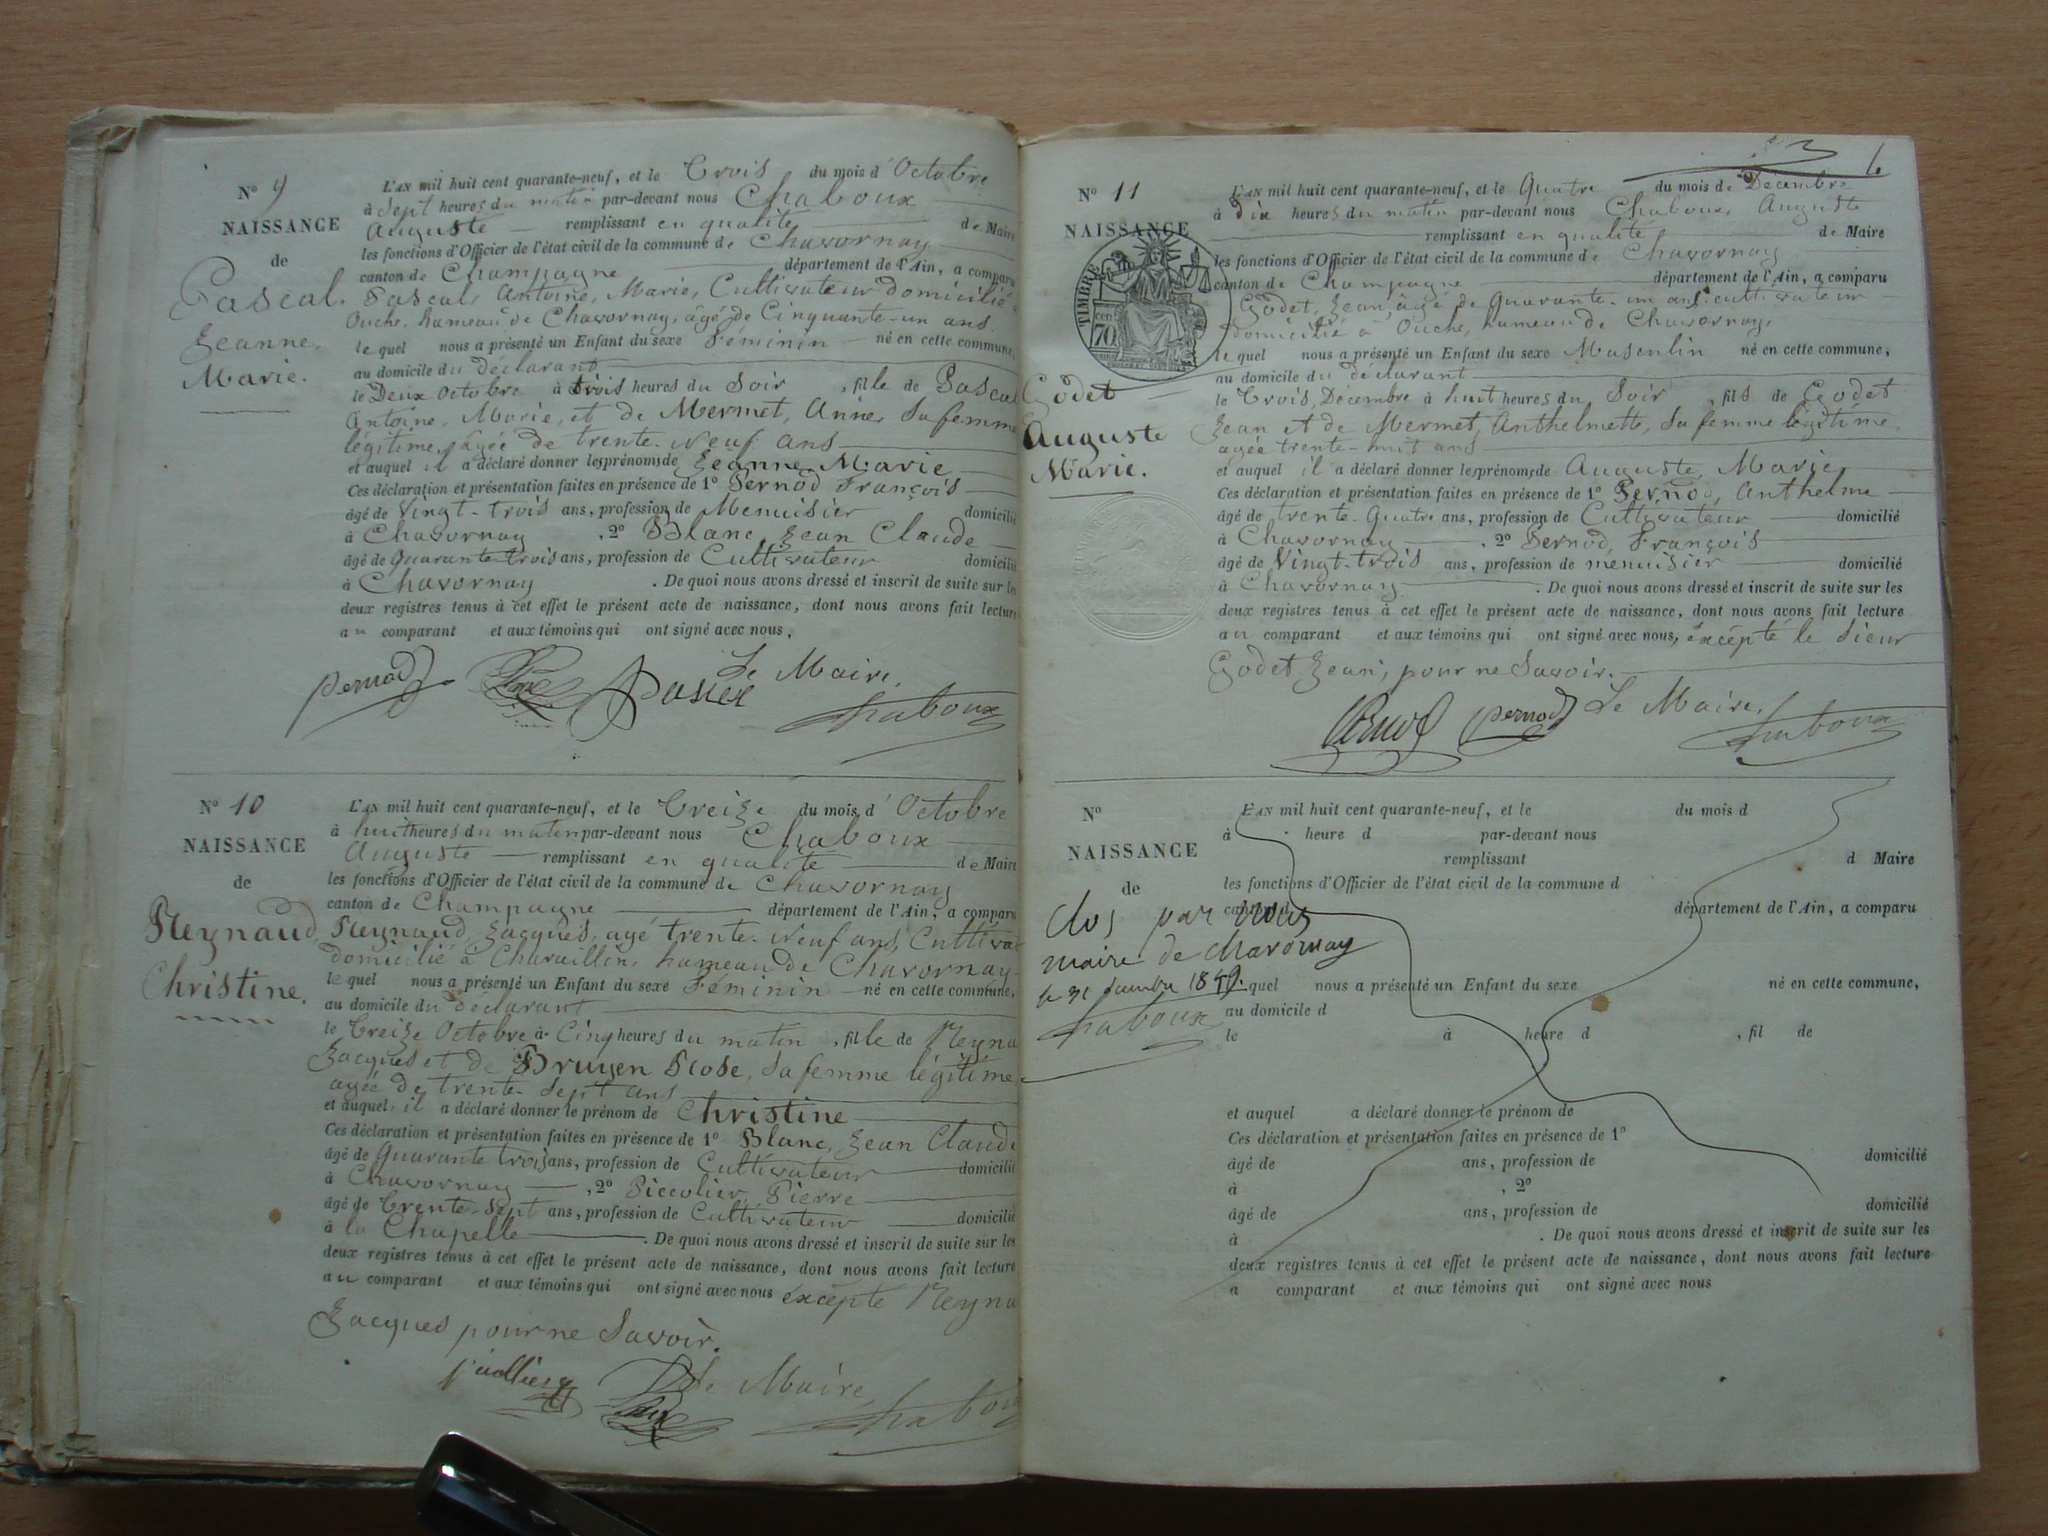 N° 9
NAISSANCE
de
Pascal
Jeanne
Marie.
L'AN mil huit cent quarante-neuf, et le Trois du mois d'Octobre
à Sept heures du matin par-devant nous Chaboux
Auguste remplissant en qualité de Maire
les fonctions d'Officier de l'état civil de la commune de Chavornay
canton de Champagne département de l'Ain, a comparu
Pascal, Antoine, Marie, Cultivateur domicilié à
Ouche, hameau de Chavornay, âgé de Cinquante-un ans.
le quel nous a présenté un Enfant du sexe Féminin né en cette commune,
au domicile du déclarant
le Deux Octobre à trois heures du Soir, fille de Pascal
Antoine, Marie, et de Mermet, Anne, Sa femme
légitime, âgée de trente-neuf ans
et auquel il a déclaré donner les prénoms de Jeanne Marie
Ces déclaration et présentation faites en présence de 1° Pernod François
âgé de Vingt-trois ans, profession de Menuisier domicilié
à Chavornay, 2° Blanc, Jean Claude
âgé de Quarante-trois ans, profession de Cultivateur domicilié
à Chavornay. De quoi nous avons dressé et inscrit de suite sur les
deux registres tenus à cet effet le présent acte de naissance, dont nous avons fait lecture
au comparant et aux témoins qui ont signé avec nous,
Le Maire,
Pernod Pascal Chaboux
N° 10
NAISSANCE
de
Reynaud
Christine.
L'AN mil huit cent quarante-neuf, et le Treize du mois d'Octobre
à huit heures du matin par-devant nous Chaboux
Auguste remplissant en qualité de Maire
les fonctions d'Officier de l'état civil de la commune de Chavornay
canton de Champagne département de l'Ain, a comparu
Reynaud, Jacques, agé trente-neuf ans, Cultiva
domicilié à Charaillin, hameau de Chavornay
le quel nous a présenté un Enfant du sexe Féminin né en cette commune,
au domicile du déclarant
le Treize Octobre à Cinq heures du matin, fille de Reyna
Jacques et de Bruyen Rose, Sa femme légitime
agée de trente-Sept ans
et auquel il a déclaré donner le prénom de Christine
Ces déclaration et présentation faites en présence de 1° Blanc, Jean Claude
âgé de Quarante trois ans, profession de Cultivateur domicilié
à Chavornay, 2° Piccolier, Pierre
âgé de Trente-Sept ans, profession de Cultivateur domicilié
à la Chapelle. De quoi nous avons dressé et inscrit de suite sur les
deux registres tenus à cet effet le présent acte de naissance, dont nous avons fait lecture
au comparant et aux témoins qui ont signé avec nous excépté Reyna
Jacques pour ne Savoir.
Le Maire,
Chaboux
6
N° 11
NAISSANCE
TIMBRE
CEN 70
Godet
Auguste
Marie.
L'AN mil huit cent quarante-neuf, et le Quatre du mois de Décembre
à dix heures du matin par-devant nous Chaboux, Auguste
remplissant en qualité de Maire
les fonctions d'Officier de l'état civil de la commune de Chavornay
canton de Champagne département de l'Ain, a comparu
Godet, Jean, âgé de Quarante-un ans, cultivateur
domicilié à Ouche, hameau de Chavornay,
le quel nous a présenté un Enfant du sexe Masculin né en cette commune,
au domicile du déclarant
le Trois, Décembre à huit heures du Soir, fils de Godet
Jean et de Mermet, Anthelmette, Sa femme légitime,
agée trente-huit ans
et auquel il a déclaré donner les prénoms de Auguste, Marie
Ces déclaration et présentation faites en présence de 1° Pernod, Anthelme
âgé de trente-Quatre ans, profession de Cultivateur domicilié
à Chavornay, 2° Pernod, François
âgé de Vingt-trois ans, profession de menuisier domicilié
à Chavornay. De quoi nous avons dressé et inscrit de suite sur les
deux registres tenus à cet effet le présent acte de naissance, dont nous avons fait lecture
au comparant et aux témoins qui ont signé avec nous, excépté le Sieur
Godet Jean, pour ne Savoir.
Le Maire,
Pernod Chaboux
N°
NAISSANCE
de
Clos par nous
maire de Chavornay
le 31 décembre 1849.
Chaboux
L'AN mil huit cent quarante-neuf, et le du mois d
à heure d par-devant nous
remplissant d Maire
les fonctions d'Officier de l'état civil de la commune d
canton d département de l'Ain, a comparu
quel nous a présenté un Enfant du sexe né en cette commune,
au domicile d
le à heure d , fil de
et auquel a déclaré donner le prénom de
Ces déclaration et présentation faites en présence de 1°
âgé de ans, profession de domicilié
à , 2°
âgé de ans, profession de domicilié
à . De quoi nous avons dressé et inscrit de suite sur les
deux registres tenus à cet effet le présent acte de naissance, dont nous avons fait lecture
a comparant et aux témoins qui ont signé avec nous